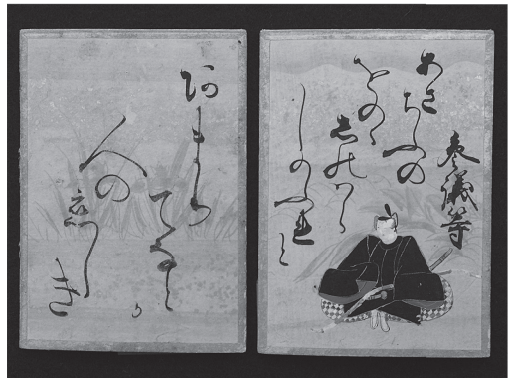 参議等
あさちふの
をのゝ
志のハら
しのふれと
阿まり
てなと
か
人の
恋し
き